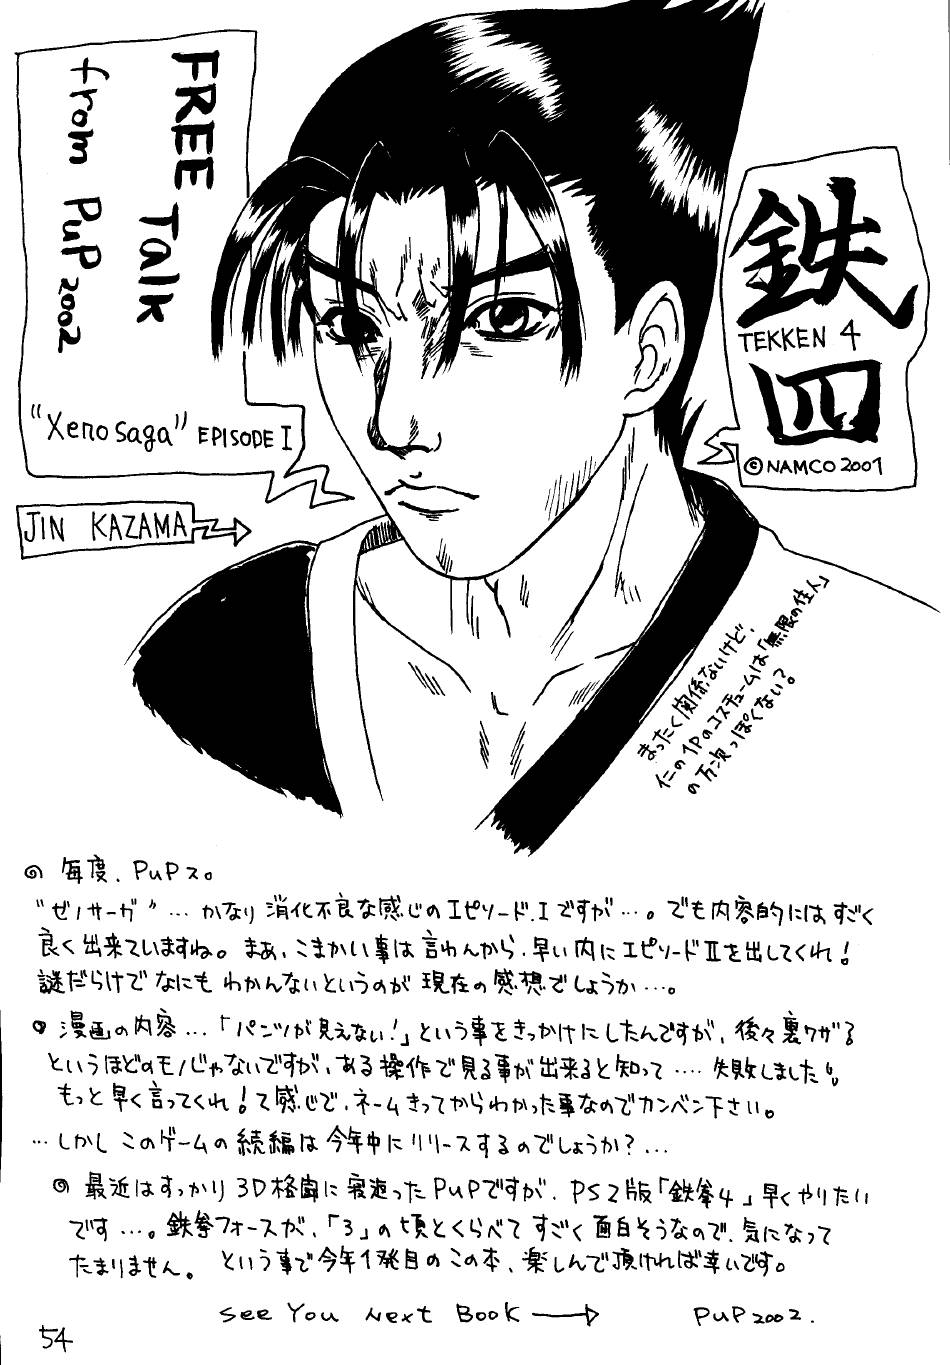 FREE Talk
from PuP 2002
"Xenosaga" EPISODE I
JIN KAZAMA
鉄
TEKKEN 4
四
©NAMCO 2001
まったく関係ないけど、
仁の1Pのコスチュームは「無限の住人」
の万次っぽくない?
毎度、PuPス。
"ゼノサーガ"…かなり消化不良な感じのエピソード.Iですが…。でも内容的にはすごく
良く出来ていますね。まあ、こまかい事は言わんから、早い内にエピソードIIを出してくれ!
謎だらけでなにもわかんないというのが現在の感想でしょうか…。
漫画の内容…「パンツが見えない!」という事をきっかけにしたんですが、後々裏ワザ
というほどのモノじゃないですが、ある操作で見る事が出来ると知って‥‥失敗しました
もっと早く言ってくれ!て感じで、ネームきってからわかった事なのでカンベン下さい。
…しかしこのゲームの続編は今年中にリリースするのでしょうか?…
最近はすっかり3D格闘に寝返ったPuPですが、PS2版「鉄拳4」早くやりたい
です…。鉄拳フォースが、「3」の頃とくらべてすごく面白そうなので、気になって
たまりません。という事で今年1発目のこの本、楽しんで頂ければ幸いです。
See You Next Book
PuP 2002.
54